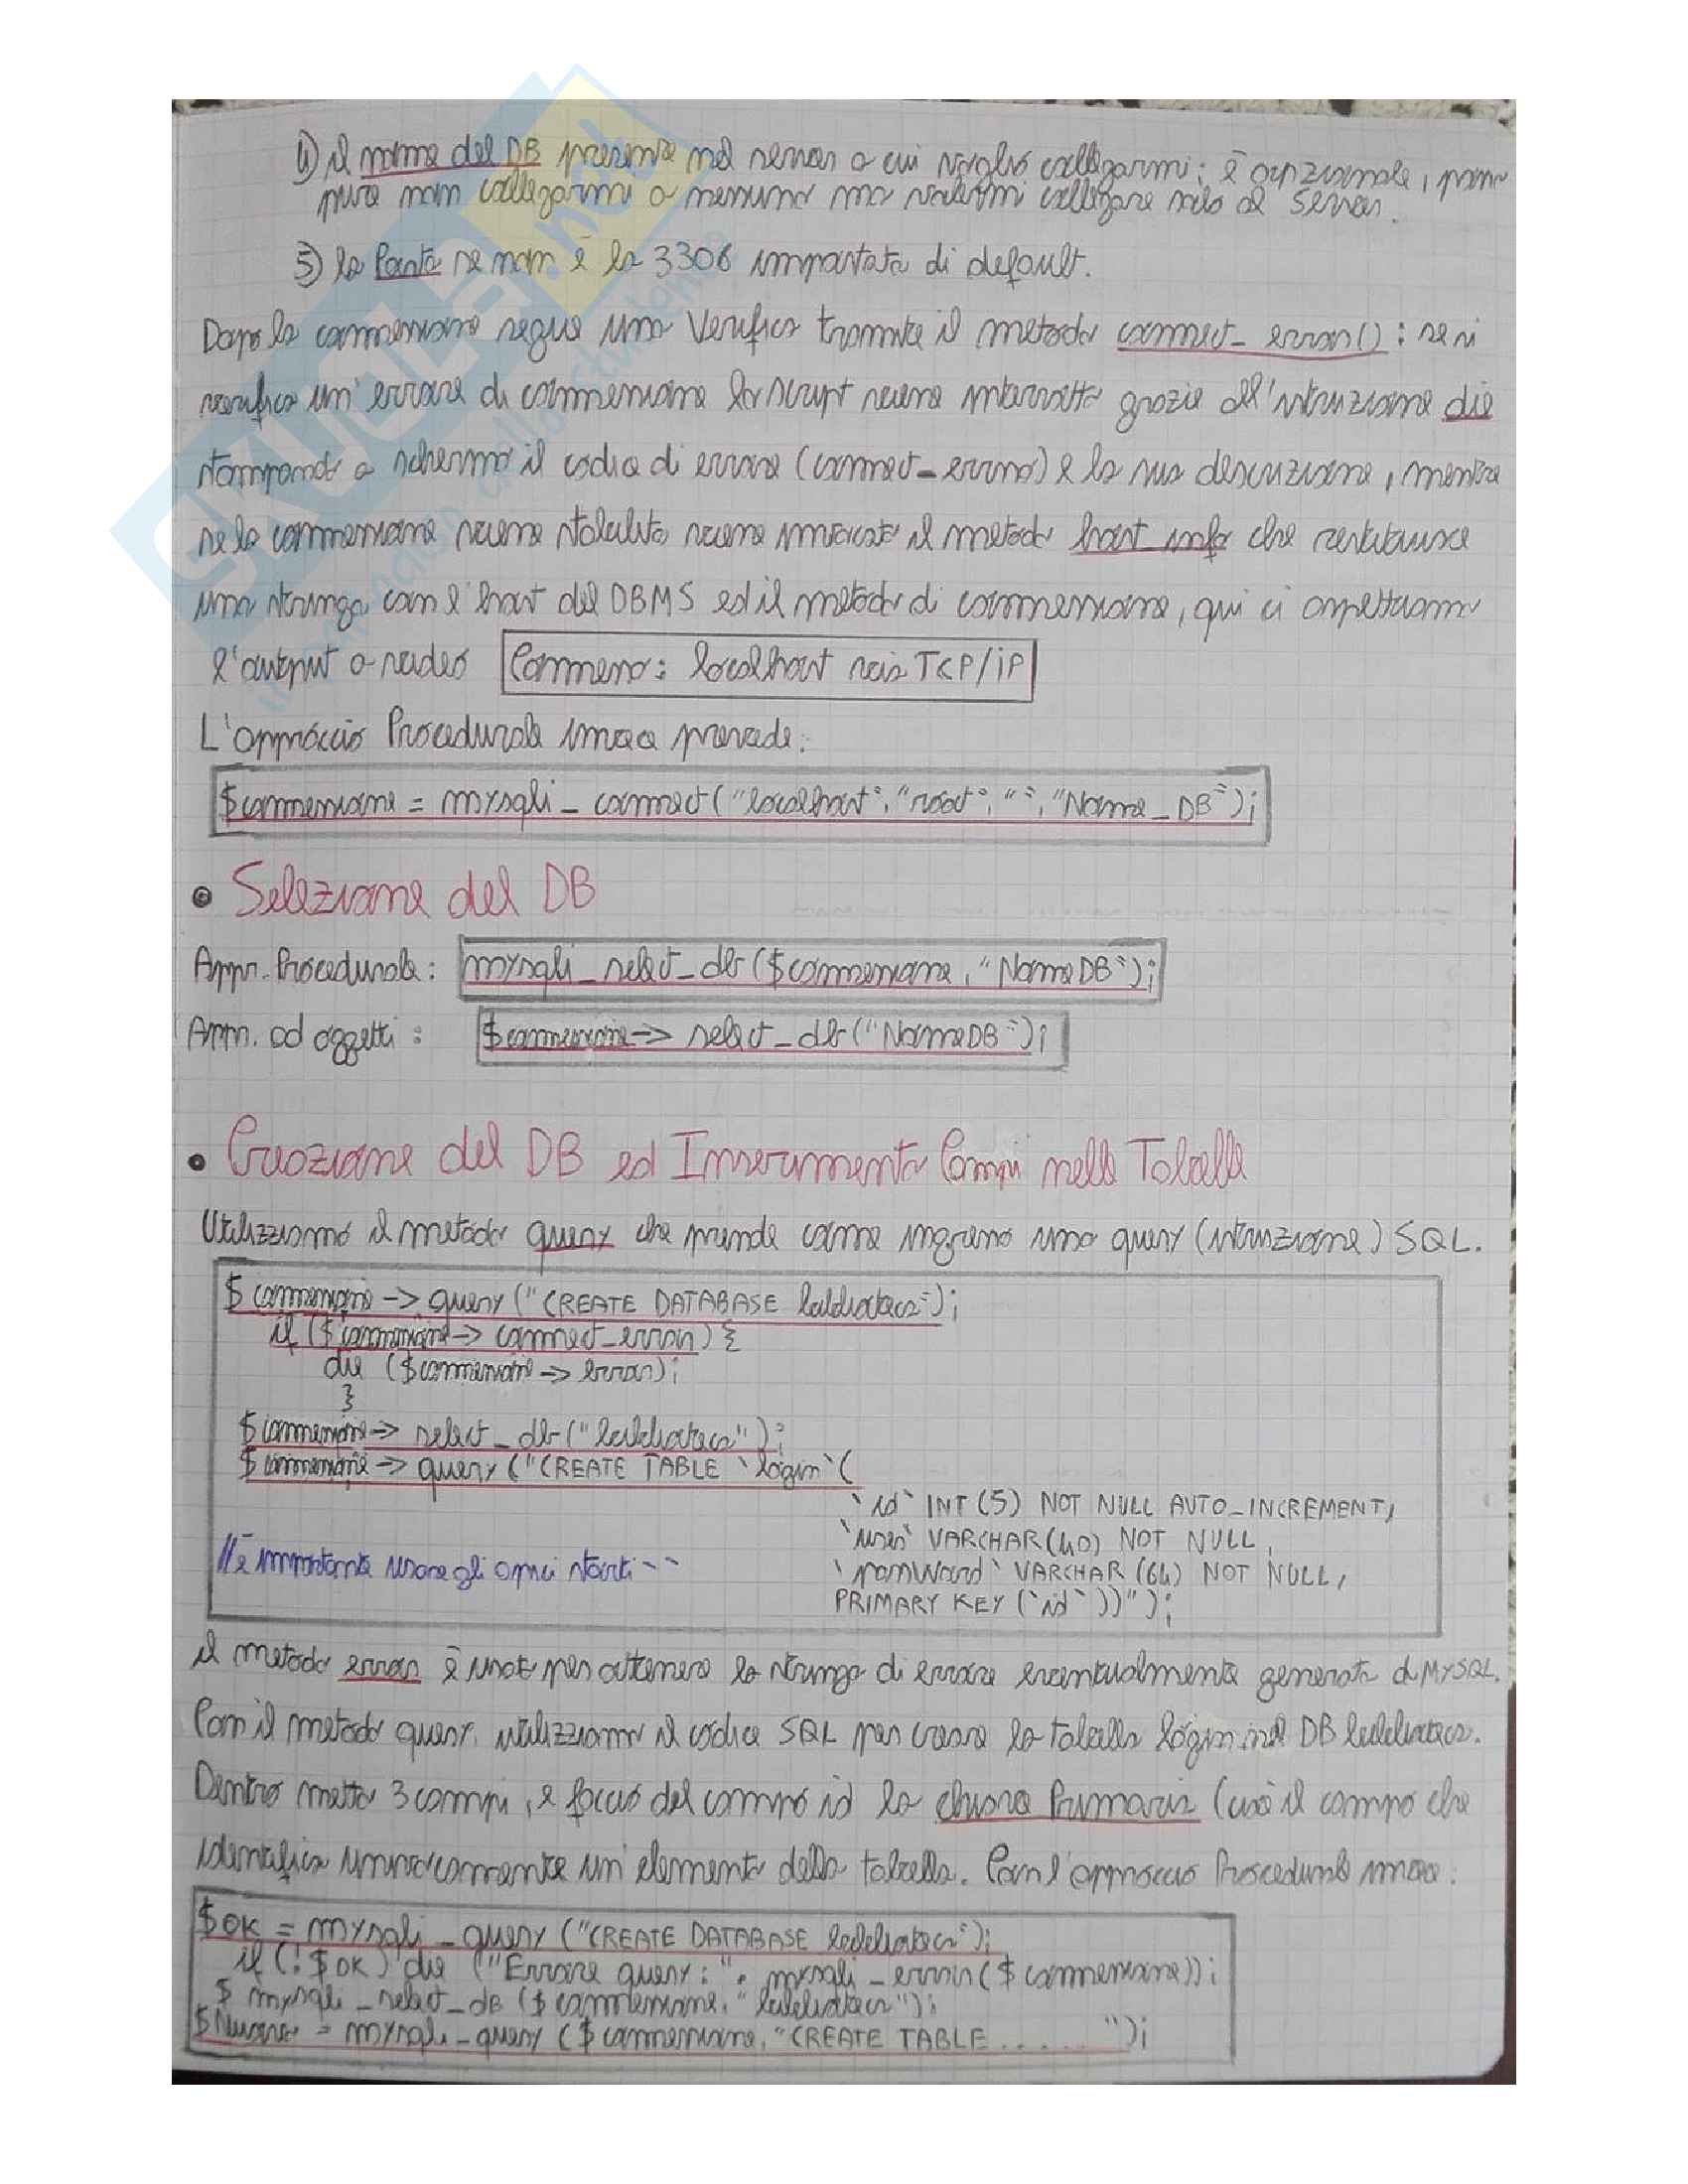 4) il nome del DB presente nel server a cui voglio collegarmi; è opzionale, posso
pure non collegarmi a nessuno ma volermi collegare solo al server.
5) la Porta se non è la 3306 impostata di default.
Dopo la connessione segue una verifica tramite il metodo connect_error(): se si
verifica un'errore di connessione lo script viene interrotto grazie all'istruzione die
stampando a schermo il codice di errore (connect_errno) e la sua descrizione, mentre
se la connessione viene stabilita viene invocato il metodo host_info che restituisce
una stringa con l'host del DBMS ed il metodo di connessione, qui ci aspettiamo
l'output a video Connesso: localhost via TCP/IP
L'approccio Procedurale invece prevede:
$connessione = mysqli_connect("localhost","root","","Nome_DB");
• Selezione del DB
Appr. Procedurale: mysqli_select_db($connessione,"NomeDB");
Appr. ad oggetti: $connessione->select_db("NomeDB");
• Creazione del DB ed Inserimento Campi nelle Tabelle
Utilizziamo il metodo query che prende come ingresso una query (istruzione) SQL.
$connessione->query("CREATE DATABASE biblioteca");
if ($connessione->connect_error) {
die ($connessione->error);
}
$connessione->select_db("biblioteca");
$connessione->query("CREATE TABLE `login`(
`id` INT(5) NOT NULL AUTO_INCREMENT,
`user` VARCHAR(40) NOT NULL,
//è importante usare gli apici storti ``
`passWord` VARCHAR(64) NOT NULL,
PRIMARY KEY (`id`))");
il metodo error è usato per ottenere la stringa di errore eventualmente generata d MySQL.
Con il metodo query, utilizziamo il codice SQL per creare la tabella login nel DB biblioteca.
Dentro metto 3 campi, e faccio del campo id la chiave Primaria (cioè il campo che
identifica univocamente un'elemento della tabella. Con l'approccio Procedurale invece:
$OK = mysqli_query ("CREATE DATABASE biblioteca");
if (!$OK) die ("Errore query:". mysqli_error($connessione));
$ mysqli_select_dB ($connessione,"biblioteca");
= mysqli_query ($connessione,"CREATE TABLE ......");